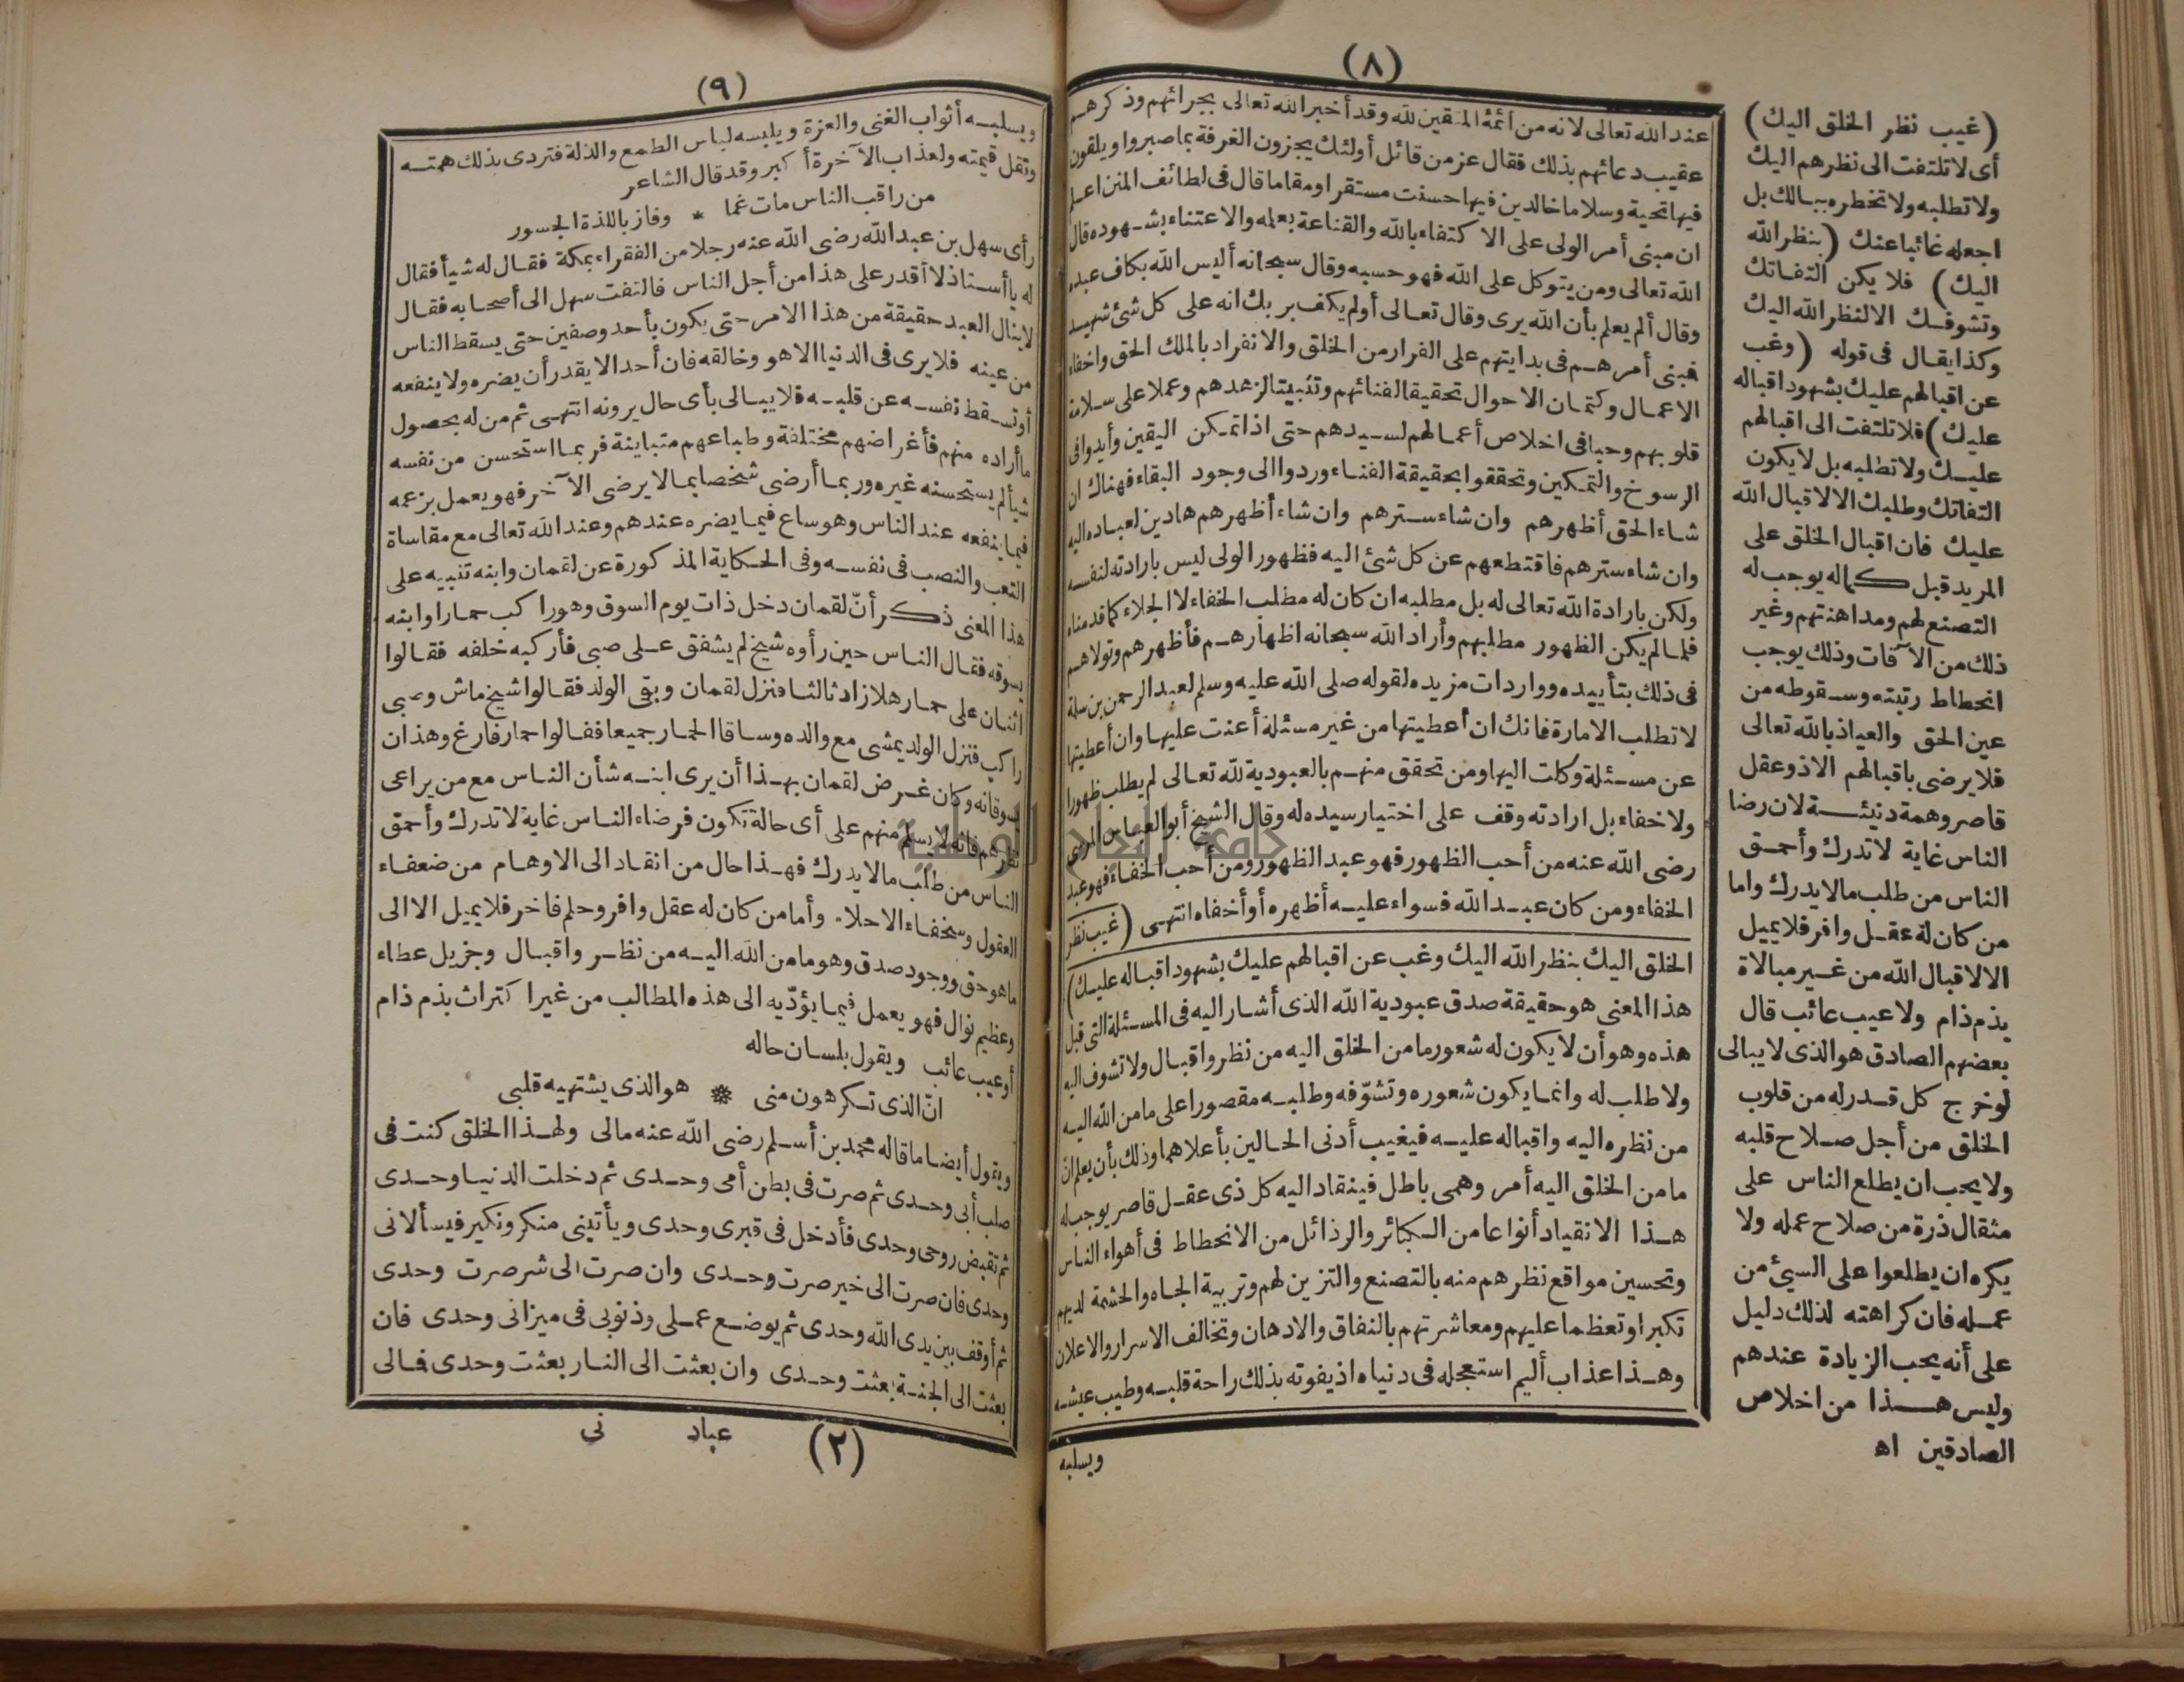 (٨)
عند الله تعالى لانه من أئمة المتقين لله وقد أخبر الله تعالى بجرائهم وذكرهم
عقيب دعائهم بذلك فقال عز من قائل أولئك يجزون الغرفة بما صبروا ويلقون
فيها تحية وسلاما خالدين فيها حسنت مستقرا ومقاما قال فى لطائف المنن اعلم
ان مبنى أمر الولى على الا كتفاء بالله والقناعة بعلمه والاعتناء بشهوده قال
الله تعالى ومن يتوكل على الله فهو حسبه وقال سبحانه أليس الله بكاف عبده
وقال ألم يعلم بأن الله يرى وقال تعالى أولم يكف بربك انه على كل شئ شهيد
فبنى أمرهم فى بدايتهم على الفرار من الخلق والانفراد بالملك الحق واخفاء
الاعمال وكتمان الاحوال تحقيقا لفنائهم وتثبيتا لزهدهم وعملا على سلامة
قلوبهم وحبا فى اخلاص أعمالهم لسيدهم حتى اذا تمكن اليقين وأيدوا فى
الرسوخ والتمكين وتحققوا بحقيقة الفناء وردوا الى وجود البقاء فهناك ان
شاء الحق أظهرهم وان شاء سترهم وان شاء أظهرهم هادين لعباده اليه
وان شاء سترهم فاقتطعهم عن كل شئ اليه فظهور الولى ليس بارادته لنفسه
ولكن بارادة الله تعالى له بل مطلبه ان كان له مطلب الخفاء لا الجلاء كما قدمناه
فلما لم يكن الظهور مطلبهم وأراد الله سبحانه اظهارهم فأظهرهم وتولاهم
فى ذلك بتأييده وواردات مزيده لقوله صلى الله عليه وسلم لعبد الرحمن بن سلمة
لا تطلب الامارة فانك ان أعطيتها من غير مسئلة أعنت عليها وان أعطيتها
عن مسئلة وكلت اليها ومن تحقق منهم بالعبودية لله تعالى لم يطلب ظهورا
ولا خفاء بل ارادته وقف على اختيار سيده له وقال الشيخ أبو العباس المرسى
رضى الله عنه من أحب الظهور فهو عبد الظهور ومن أحب الخفاء فهو عبد
الخفاء ومن كان عبد الله فسواء عليه أظهره أو أخفاه انتهى (غيب نظر
الخلق اليك بنظر الله اليك وغب عن اقبالهم عليك بشهود اقباله عليك)
هذا المعنى هو حقيقة صدق عبودية الله الذى أشار اليه فى المسئلة التى قبل
هذه وهو أن لا يكون له شعور ما من الخلق اليه من نظر واقبال ولا تشوف اليه
ولا طلب له وانما يكون شعوره وتشوّفه وطلبه مقصورا على ما من الله اليه
من نظره اليه واقباله عليه فيغيب أدنى الحالين بأعلاهما وذلك بأن يعلم انّ
ما من الخلق اليه أمر وهمى باطل فينقاد اليه كل ذى عقل قاصر يوجب له
هذا الانقياد أنواعا من الكبائر والرذائل من الانحطاط فى أهواء الناس
وتحسين مواقع نظرهم منه بالتصنع والتزين لهم وتربية الجاه والحشمة لديهم
تكبرا وتعظما عليهم ومعاشرتهم بالنفاق والادهان وتخالف الاسرار والاعلان
وهذا عذاب أليم استعجله فى دنياه اذ يفوته بذلك راحة قلبه وطيب عيشه
ويسلبه
(غيب نظر الخلق اليك)
أى لا تلتفت الى نظرهم اليك
ولا تطلبه ولا تخطره ببالك بل
اجعله غائبا عنك (بنظر الله
اليك) فلا يكن التفاتك
وتشوفك الا لنظر الله اليك
وكذا يقال فى قوله (وغب
عن اقبالهم عليك بشهود اقباله
عليك) فلا تلتفت الى اقبالهم
عليك ولا تطلبه بل لا يكون
التفاتك وطلبك الا لاقبال الله
عليك فان اقبال الخلق على
المريد قبل كماله يوجب له
التصنع لهم ومداهنتهم وغير
ذلك من الآفات وذلك يوجب
انحطاط رتبته وسقوطه من
عين الحق والعياذ بالله تعالى
فلا يرضى باقبالهم الا ذو عقل
قاصر وهمة دنيئة لان رضا
الناس غاية لا تدرك وأحمق
الناس من طلب مالا يدرك واما
من كان له عقل وافر فلا يميل
الا لاقبال الله من غير مبالاة
بذم ذام ولا عيب عائب قال
بعضهم الصادق هو الذى لا يبالى
لو خرج كل قدر له من قلوب
الخلق من أجل صلاح قلبه
ولا يحب ان يطلع الناس على
مثقال ذرة من صلاح عمله ولا
يكره ان يطلعوا على السيئ من
عمله فان كراهته لذلك دليل
على أنه يحب الزيادة عندهم
وليس هذا من اخلاص
الصادقين اه
(٩)
ويسلبه أثواب الغنى والعزة ويلبسه لباس الطمع والذلة فتردى بذلك همته
وتقل قيمته ولعذاب الآخرة أكبر وقد قال الشاعر
من راقب الناس مات غما * وفاز باللذة الجسور
رأى سهل بن عبد الله رضى الله عنه رجلا من الفقراء بمكة فقال له شيأ فقال
له يا أستاذ لا أقدر على هذا من أجل الناس فالتفت سهل الى أصحابه فقال
لا ينال العبد حقيقة من هذا الامر حتى يكون بأحد وصفين حتى يسقط الناس
من عينه فلا يرى فى الدنيا الا هو وخالقه فان أحدا لا يقدر أن يضره ولا ينفعه
أو تسقط نفسه عن قلبه فلا يبالى بأى حال يرونه انتهى ثم من له بحصول
ما أراده منهم فأغراضهم مختلفة وطباعهم متباينة فربما استحسن من نفسه
شيأ لم يستحسنه غيره وربما أرضى شخصا بما لا يرضى الآخر فهو يعمل بزعمه
فيما ينفعه عند الناس وهو ساع فيما يضره عندهم وعند الله تعالى مع مقاساة
التعب والنصب فى نفسه وفى الحكاية المذكورة عن لقمان وابنه تنبيه على
هذا المعنى ذكر أنّ لقمان دخل ذات يوم السوق وهو راكب حمارا وابنه
يسوقه فقال الناس حين رأوه شيخ لم يشفق على صبى فأركبه خلفه فقالوا
اثنان على حمار هلا زاد ثالثا فنزل لقمان وبقى الولد فقالوا شيخ ماش وصبى
راكب فنزل الولد يمشى مع والده وساقا الحمار جميعا فقالوا حمار فارغ وهذان
يسوقانه وكان غرض لقمان بهذا أن يرى ابنه شأن الناس مع من يراعى
نظرهم فانه لا يسلم منهم على أى حالة تكون فرضاء الناس غاية لا تدرك وأحمق
الناس من طلب مالا يدرك فهذا حال من انقاد الى الاوهام من ضعفاء
العقول وسخفاء الاحلام وأما من كان له عقل وافر وحلم فاخر فلا يميل الا الى
ما هو حق ووجود صدق وهو ما من الله اليه من نظر واقبال وجزيل عطاء
وعظيم نوال فهو يعمل فيما يؤدّيه الى هذه المطالب من غير اكتراث بذم ذام
أو عيب عائب ويقول بلسان حاله
انّ الذى تكرهون منى * هو الذى يشتهيه قلبى
ويقول أيضا ما قاله محمد بن أسلم رضى الله عنه مالى ولهذا الخلق كنت فى
صلب أبى وحدى ثم صرت فى بطن أمى وحدى ثم دخلت الدنيا وحدى
ثم تقبض روحى وحدى فأدخل فى قبرى وحدى ويأتينى منكر ونكير فيسألانى
وحدى فان صرت الى خير صرت وحدى وان صرت الى شر صرت وحدى
ثم أوقف بين يدى الله وحدى ثم يوضع عملى وذنوبى فى ميزانى وحدى فان
بعثت الى الجنة بعثت وحدى وان بعثت الى النار بعثت وحدى فالى
(٢) عباد نى
جامعة النجاح الوطنية